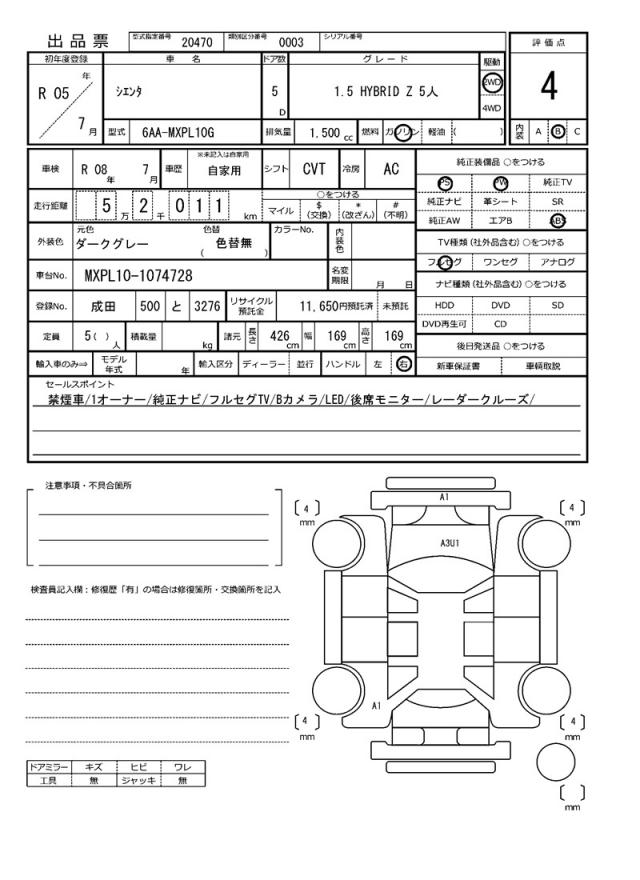 出品票 型式指定番号 20470 類別区分番号 0003 シリアル番号
評価点
4
内装 A B C
初年度登録 車名 ドア数 グレード 駆動
R 05 年 7 月 シエンタ 5 D 1.5 HYBRID Z 5人 2WD 4WD
型式 6AA-MXPL10G 排気量 1.500 cc 燃料 ガソリン 軽油 ( )
車検 R 08 年 7 月 車歴 ※未記入は自家用 自家用 シフト CVT 冷房 AC
走行距離 5 万 2 千 0 1 1 km ○をつける マイル $ (交換) * (改ざん) # (不明)
外装色 元色 ダークグレー 色替 ( 色替無 ) カラーNo. 内装色
車台No. MXPL10-1074728 名変期限 月 日
登録No. 成田 500 と 3276 リサイクル預託金 11,650円預託済 未預託
定員 5( ) 人 積載量 kg 諸元 長さ 426 cm 幅 169 cm 高さ 169 cm
輸入車のみ⇒ モデル年式 年 輸入区分 ディーラー 並行 ハンドル 左 右
純正装備品 ○をつける
PS PW 純正TV
純正ナビ 革シート SR
純正AW エアB ABS
TV種類 (社外品含む) ○をつける
フルセグ ワンセグ アナログ
ナビ種類 (社外品含む) ○をつける
HDD DVD SD
DVD再生可 CD
後日発送品 ○をつける
新車保証書 車輌取説
セールスポイント
禁煙車/1オーナー/純正ナビ/フルセグTV/Bカメラ/LED/後席モニター/レーダークルーズ/
注意事項・不具合箇所
検査員記入欄：修復歴「有」の場合は修復箇所・交換箇所を記入
ドアミラー キズ ヒビ ワレ
工具 無 ジャッキ 無
A1
4 mm
4 mm
A3U1
A1
4 mm
4 mm
mm